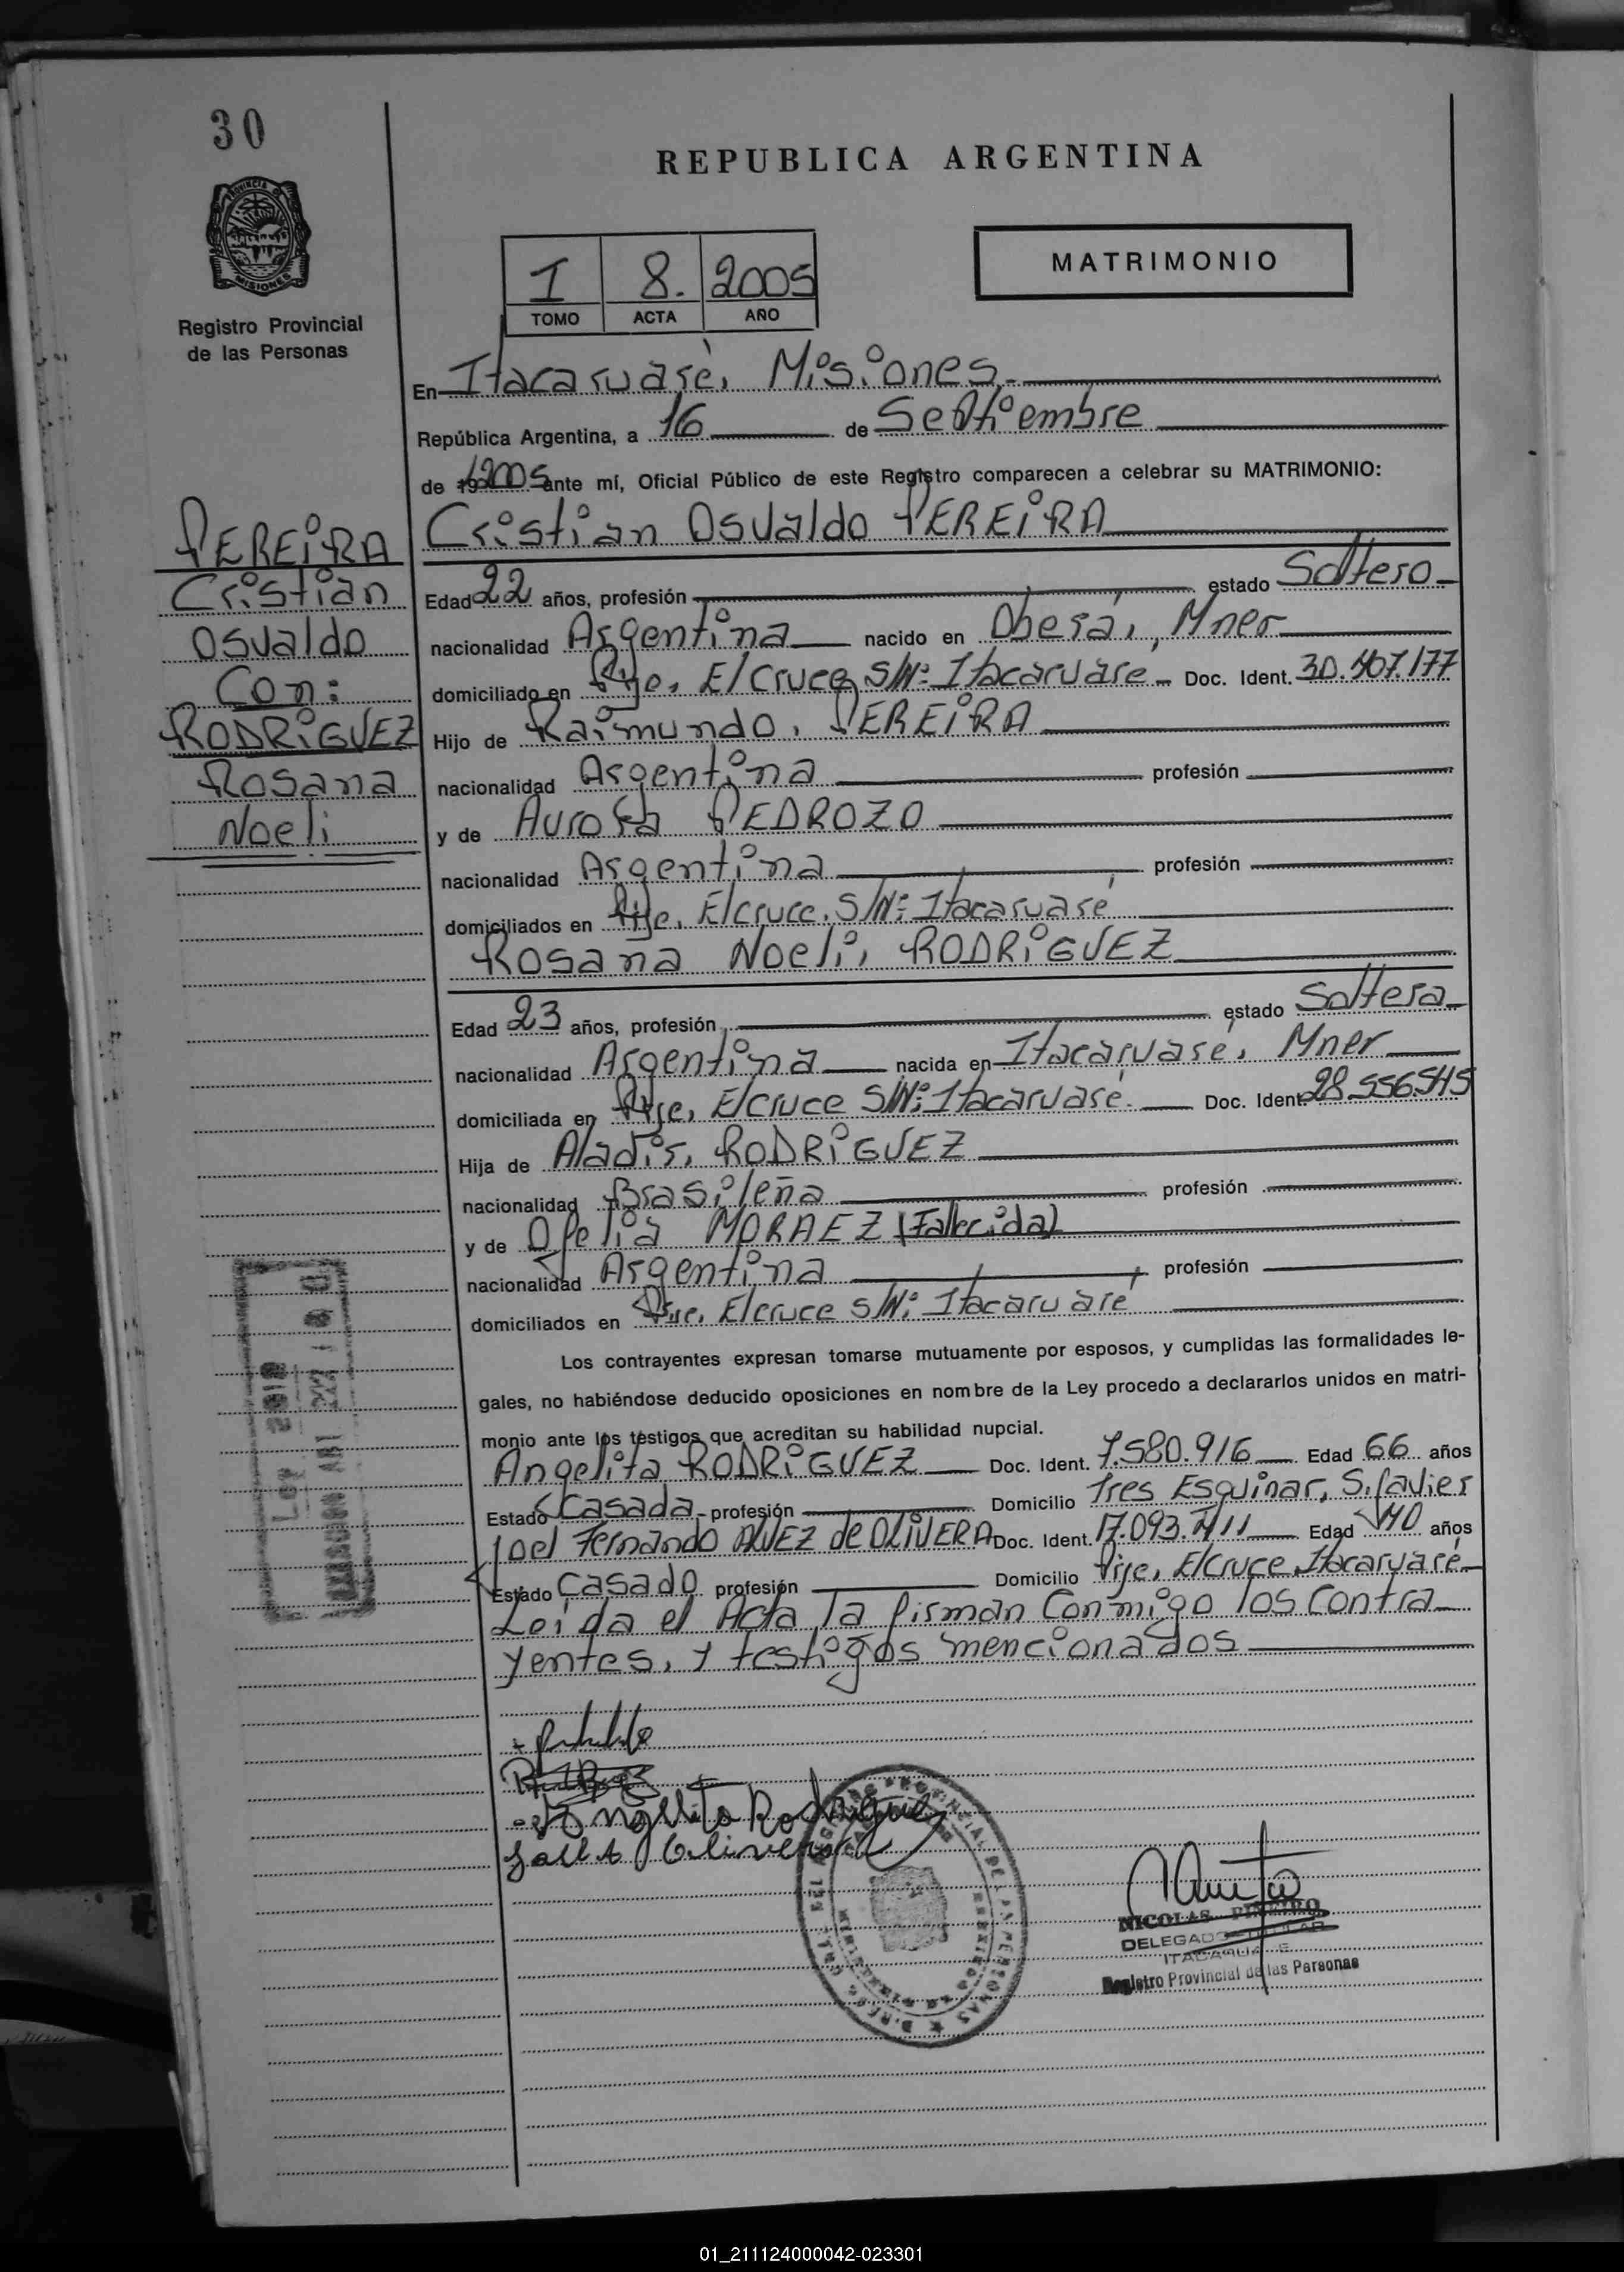 30
REPUBLICA ARGENTINA
PROVINCIA DE MISIONES
Registro Provincial
de las Personas
I 8. 2005
TOMO ACTA AÑO
MATRIMONIO
En Itacaruaré, Misiones.-
República Argentina, a 16 de Septiembre
de 2005 ante mí, Oficial Público de este Registro comparecen a celebrar su MATRIMONIO:
PEREIRA
Cristian
Osvaldo
Con:
RODRIGUEZ
Rosana
Noeli
Cristian Osvaldo PEREIRA
Edad 22 años, profesión estado Soltero
nacionalidad Argentina nacido en Oberá, Mnes
domiciliado en Pje. El Cruce S/Nº Itacaruaré Doc. Ident. 30.407.177
Hijo de Raimundo, PEREIRA
nacionalidad Argentina profesión
y de Aurora PEDROZO
nacionalidad Argentina profesión
domiciliados en Pje. El cruce. S/Nº Itacaruaré
Rosana Noeli, RODRIGUEZ
Edad 23 años, profesión estado Soltera
nacionalidad Argentina nacida en Itacaruaré, Mnes
domiciliada en Pje. El cruce S/Nº Itacaruaré. Doc. Ident. 28.556.545
Hija de Aladis, RODRIGUEZ
nacionalidad Brasileña profesión
y de Ofelia MORAEZ (Fallecida)
nacionalidad Argentina profesión
domiciliados en Pje. El cruce S/Nº Itacaruaré
Los contrayentes expresan tomarse mutuamente por esposos, y cumplidas las formalidades le-
gales, no habiéndose deducido oposiciones en nombre de la Ley procedo a declararlos unidos en matri-
monio ante los testigos que acreditan su habilidad nupcial.
Angelita RODRIGUEZ Doc. Ident. 7.580.916 Edad 66 años
Estado Casada profesión Domicilio Tres Esquinas, S. Javier
Joel Fernando ALVEZ de OLIVERA Doc. Ident. 17.093. Edad 40 años
Estado Casado profesión Domicilio Pje. El cruce Itacaruaré
Leída el Acta la firman Conmigo los Contra
yentes, y testigos mencionados
Angelita Rodriguez
NICOLAS PIÑEIRO
DELEGADO TITULAR
ITACARUARE
Registro Provincial de las Personas
01_211124000042-023301